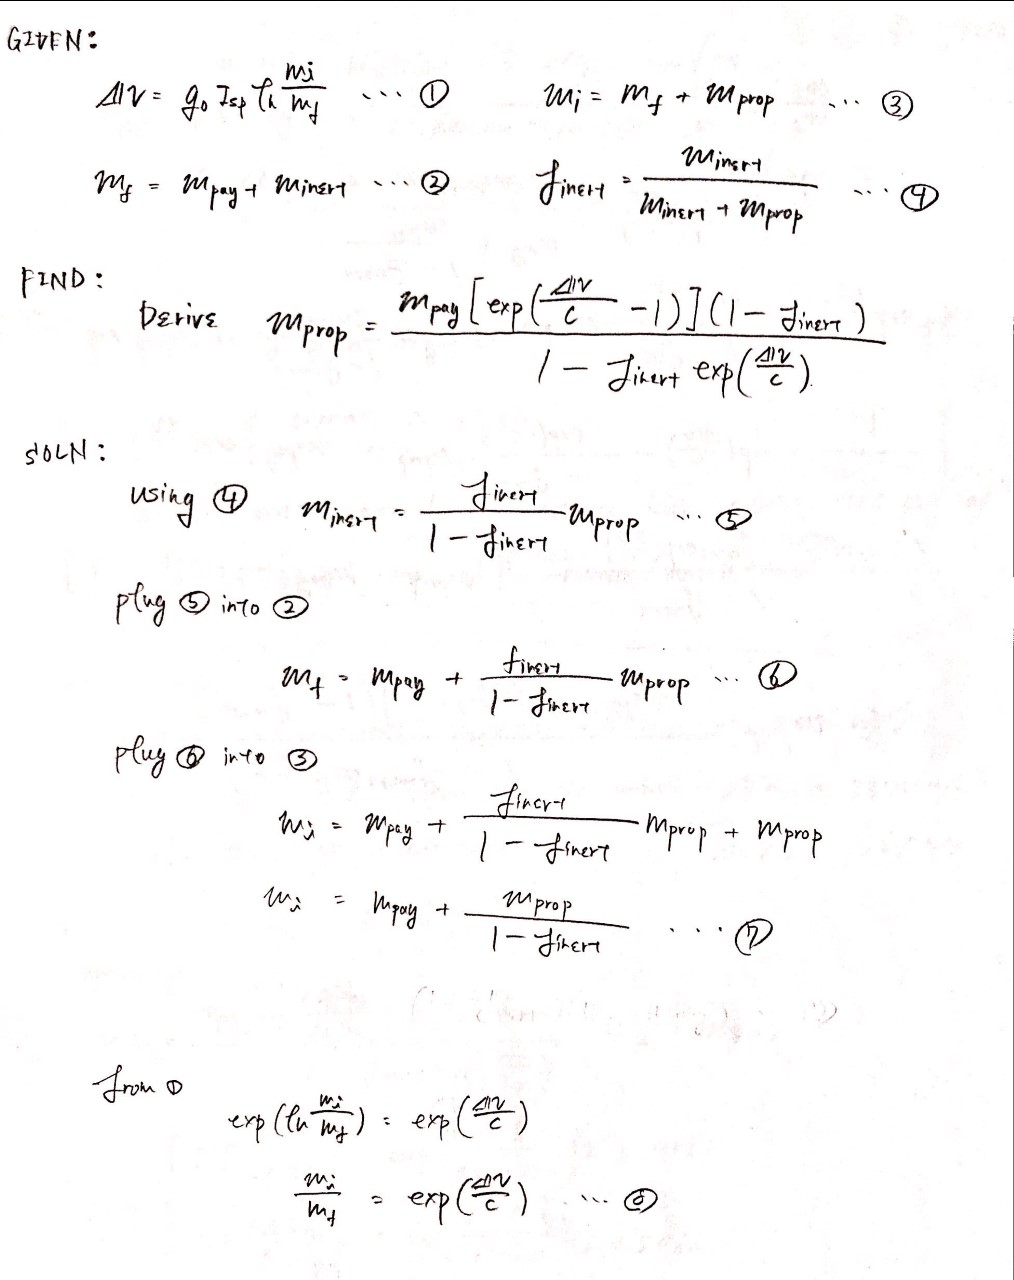 GIVEN:
ΔV = g₀ Isp ln mi/mf ... ① mi = mf + mprop ... ③
mf = mpay + minert ... ② finert = minert/(minert + mprop) ... ④
FIND:
Derive mprop = mpay [exp(ΔV/c - 1)](1 - finert) / (1 - finert exp(ΔV/c))
SOLN:
using ④ minert = finert/(1 - finert) mprop ... ⑤
plug ⑤ into ②
mf = mpay + finert/(1 - finert) mprop ... ⑥
plug ⑥ into ③
mi = mpay + finert/(1 - finert) mprop + mprop
mi = mpay + mprop/(1 - finert) .... ⑦
from ①
exp(ln mi/mf) = exp(ΔV/c)
mi/mf = exp(ΔV/c) ... ⑧